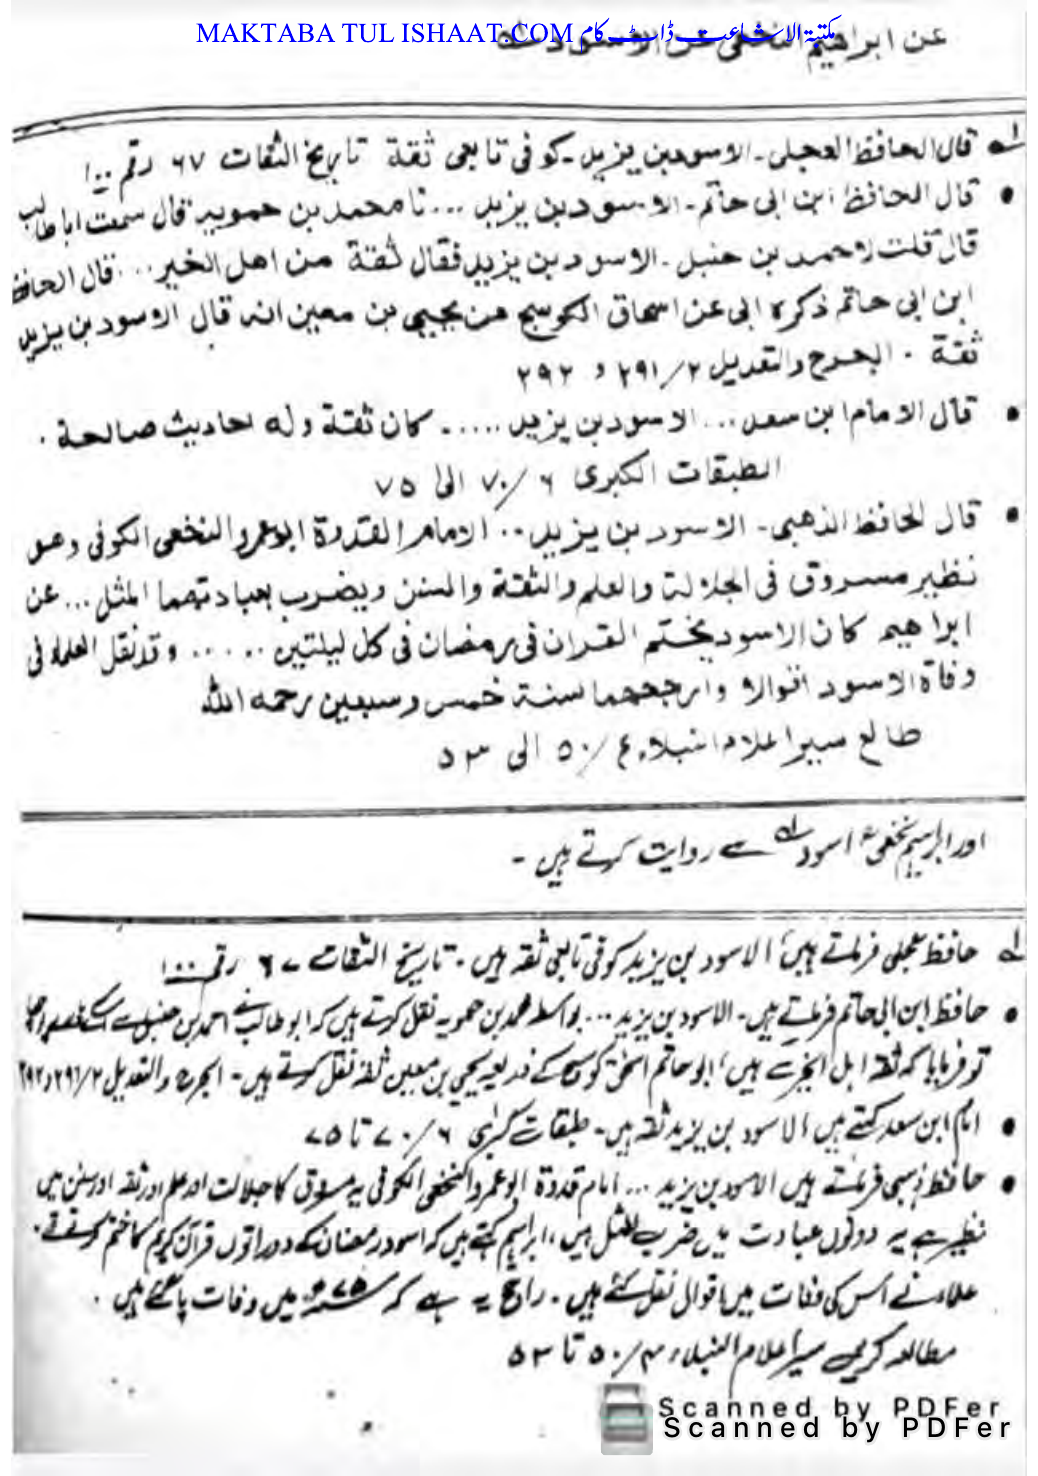 MAKTABA TUL ISHAAT.COM مکتبۃ الاشاعت ڈاٹ کام
عن ابراهيم النخعى عن الاسود
لـه قال الحافظ العجلى۔ الاسود بن يزيد۔ كوفى تابعى ثقة تاريخ الثقات ٦٧ رقم ١٠٠
• قال الحافظ ابن ابى حاتم۔ الاسود بن يزيد ... نا محمد بن حمويه قال سمعت ابا طالب
قال قلت لاحمد بن حنبل۔ الاسود بن يزيد فقال ثقة من اهل الخير ... قال الحافظ
ابن ابى حاتم ذكره ابى عن اسحاق الكوسج عن يحيى بن معين انه قال الاسود بن يزيد
ثقة ۔ الجرح والتعديل ٢/٢٩١ و ٢٩٢
• قال الامام ابن سعد ... الاسود بن يزيد ..... كان ثقة وله احاديث صالحة ۔
الطبقات الكبرى ٦/٧٠ الى ٧٥
• قال الحافظ الذهبى۔ الاسود بن يزيد .. الامام القدوة ابو عمرو النخعى الكوفى وهو
نظير مسروق فى الجلالة والعلم والثقة والسنن ويضرب بعبادتهما المثل ... عن
ابراهيم كان الاسود يختم القران فى رمضان فى كل ليلتين ..... وقد نقل العلماء فى
وفاة الاسود اقوالا وارجحها سنة خمس وسبعين رحمه الله
طالع سير اعلام النبلاء ٤/٥٠ الى ٥٣
اور ابراہیم نخعیؒ اسودؒ لـه سے روایت کرتے ہیں۔
لـه حافظ عجلی فرماتے ہیں، الاسود بن یزید کوفی تابعی ثقہ ہیں۔ تاریخ الثقات ٦٧ رقم ١٠٠
• حافظ ابن ابی حاتم فرماتے ہیں۔ الاسود بن یزید ... بواسطہ محمد بن حمویہ نقل کرتے ہیں کہ ابو طالب نے احمد بن حنبل سے انکے متعلق پوچھا
تو فرمایا کہ ثقہ اہل الخیر سے ہیں، ابو حاتم اسحٰق کوسج کے ذریعہ یحیی بن معین ثقہ نقل کرتے ہیں۔ الجرح والتعدیل ٢/٢٩١ و ٢٩٢
• امام ابن سعد کہتے ہیں الاسود بن یزید ثقہ ہیں۔ طبقات کبرٰی ٦/٧٠ تا ٧٥
• حافظ ذہبی فرماتے ہیں الاسود بن یزید ... امام قدوة ابو عمرو النخعی الکوفی یہ مسروق کا جلالت اور علم اور ثقہ اور سنن میں
نظیر ہے یہ دونوں عبادت میں ضرب المثل ہیں، ابراہیم کہتے ہیں کہ اسود رمضان کے دو راتوں قرآن کریم کا ختم کرتے تھے۔
علماء نے اُس کی وفات میں اقوال نقل کئے ہیں۔ راجح یہ ہے کہ ٧٥ھ میں وفات پا گئے ہیں۔
مطالعہ کریں سیر اعلام النبلاء ٤/٥٠ تا ٥٣
Scanned by PDFer
Scanned by PDFer